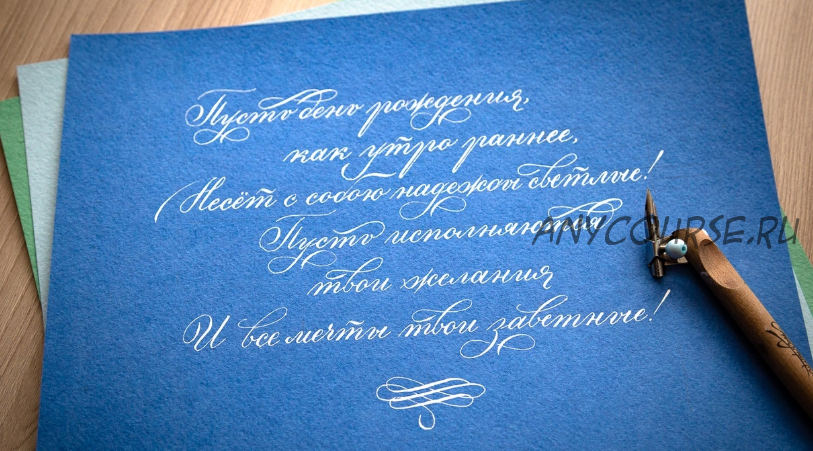 Пусть день рождения,
как утро раннее,
Несёт с собою надежды светлые!
Пусть исполняются
ANYCOURSE.RU
твои желания
И все мечты твои заветные!